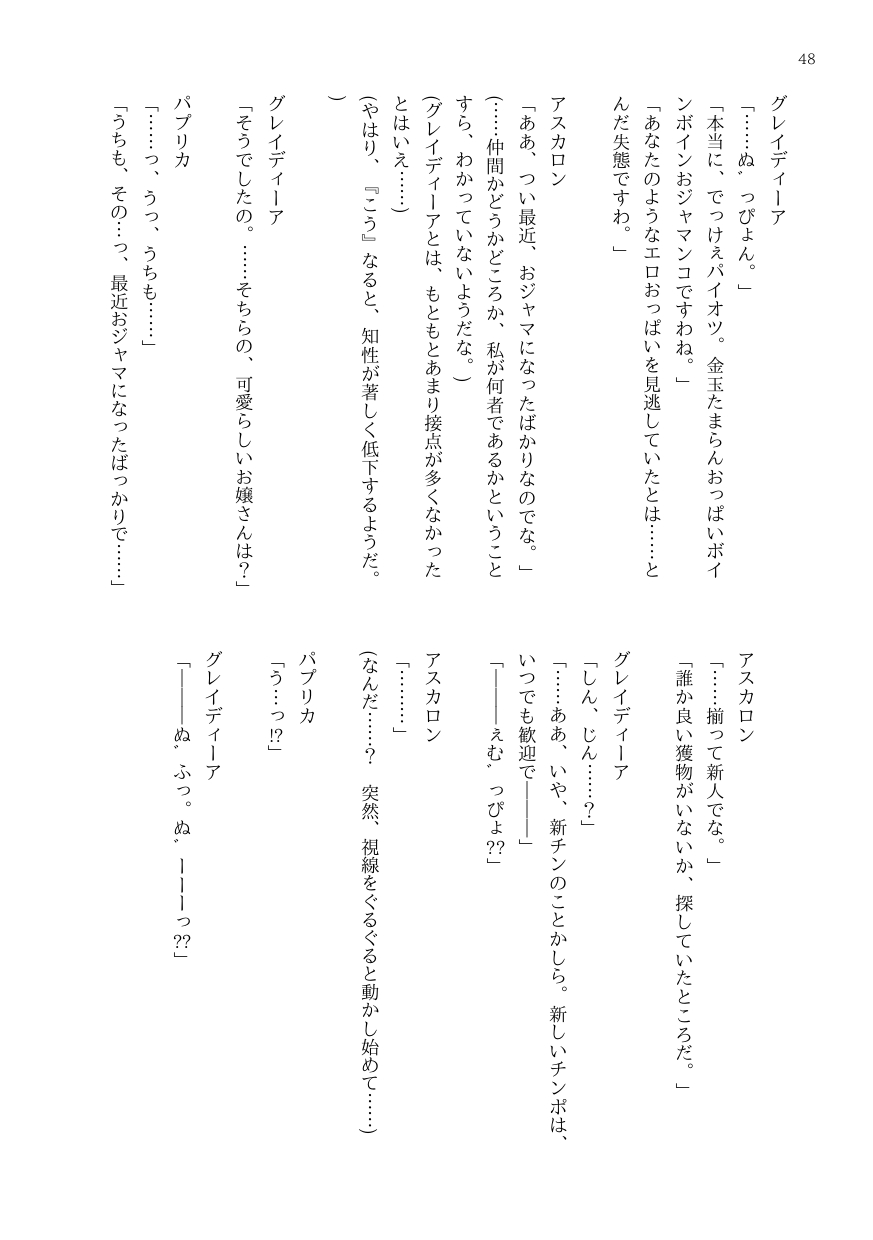 48
グレイディーア
「……ぬ゛っぴょん。」
「本当に、でっけぇパイオツ。金玉たまらんおっぱいボイ
ンボインおジャマンコですわね。」
「あなたのようなエロおっぱいを見逃していたとは……と
んだ失態ですわ。」
アスカロン
「ああ、つい最近、おジャマになったばかりなのでな。」
(……仲間かどうかどころか、私が何者であるかということ
すら、わかっていないようだな。)
(グレイディーアとは、もともとあまり接点が多くなかった
とはいえ……)
(やはり、『こう』なると、知性が著しく低下するようだ。
)
グレイディーア
「そうでしたの。……そちらの、可愛らしいお嬢さんは？」
パプリカ
「……っ、うっ、うちも……」
「うちも、その…っ、最近おジャマになったばっかりで……」
アスカロン
「……揃って新人でな。」
「誰か良い獲物がいないか、探していたところだ。」
グレイディーア
「しん、じん……？」
「……ああ、いや、新チンのことかしら。新しいチンポは、
いつでも歓迎で―――」
「―――ぇむ゛っぴょ??」
アスカロン
「………」
(なんだ……？　突然、視線をぐるぐると動かし始めて……)
パプリカ
「う…っ!?」
グレイディーア
「―――ぬ゛ふっ。ぬ゛ーーーっ??」